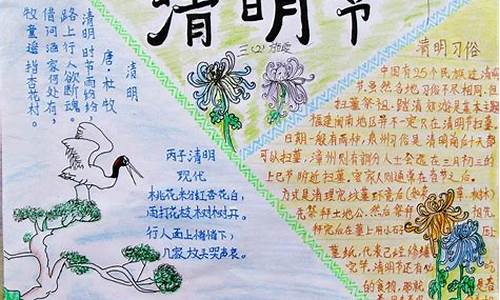 清明节
三(2)
清明
唐·杜牧
清明时节雨纷纷,
路上行人欲断魂。
借问酒家何处有,
牧童遥指杏花村。
丙子清明
现代
桃花半红杏花白,
雨打花枝树树开。
行人面上
几家放
清明习俗
中国有25个民族过清明
节,虽然各地习俗不尽相同,但
扫墓祭祖、踏清郊游是基本主题
福建闽南地区并不一定只在清明节扫墓
日期一般有两种,泉州习俗是清明前后十天都
可以扫墓,漳州则有部分人士会选在三月初三的
上巳节附近扫墓,客家人则通常在春节之后。
方式是清理完坟墓环境后
先祭拜土地公,然后祭拜
拜完后在墓上用小石
墓纸,代表已经修缮
完。清明节还有吃
的食物,那就